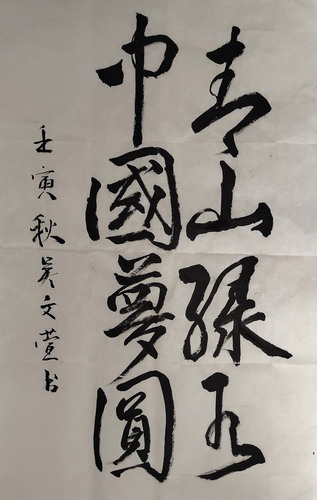 青山綠水
中國夢圓
壬寅秋吳文萱书